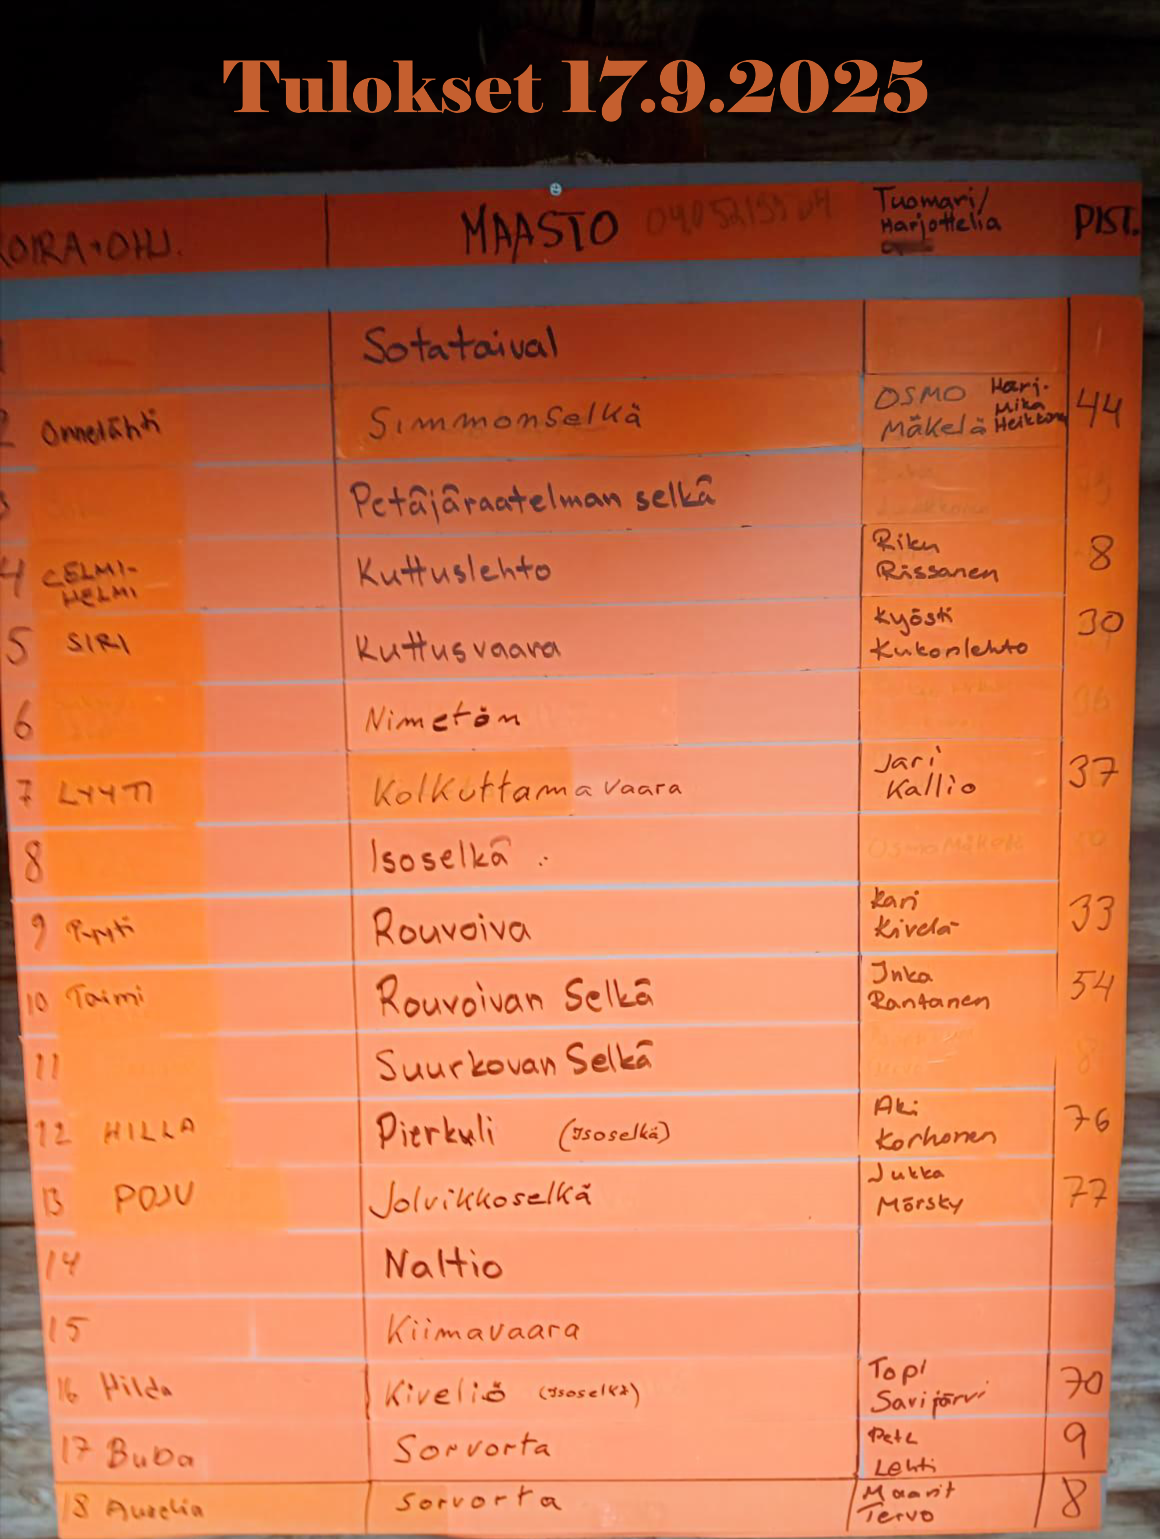 Tulokset 17.9.2025
Tuomari/
KOIRA+OHJ. MAASTO Harjottelia PIST.
1 Sotataival
2 Onnelähti Simmonselkä OSMO Mäkelä Harj. Mika Heikkonen 44
3 Petäjäraatelman selkä
4 CELMI-HELMI Kuttuslehto Riku Rissanen 8
5 SIRI Kuttusvaara Kyösti Kukonlehto 30
6 Nimetön
7 LYYTI Kolkuttamavaara Jari Kallio 37
8 Isoselkä Osmo Mäkelä
9 Pyyti Rouvoiva Kari Kivelä 33
10 Taimi Rouvoivan Selkä Inka Rantanen 54
11 Suurkovan Selkä 8
12 HILLA Pierkuli (Isoselkä) Aki Korhonen 76
13 POJU Jolvikkoselkä Jukka Mörsky 77
14 Naltio
15 Kiimavaara
16 Hilda Kiveliö (Isoselkä) Topi Savijärvi 70
17 Buba Sorvorta Pete Lehti 9
18 Aurelia Sorvorta Maarit Tervo 8